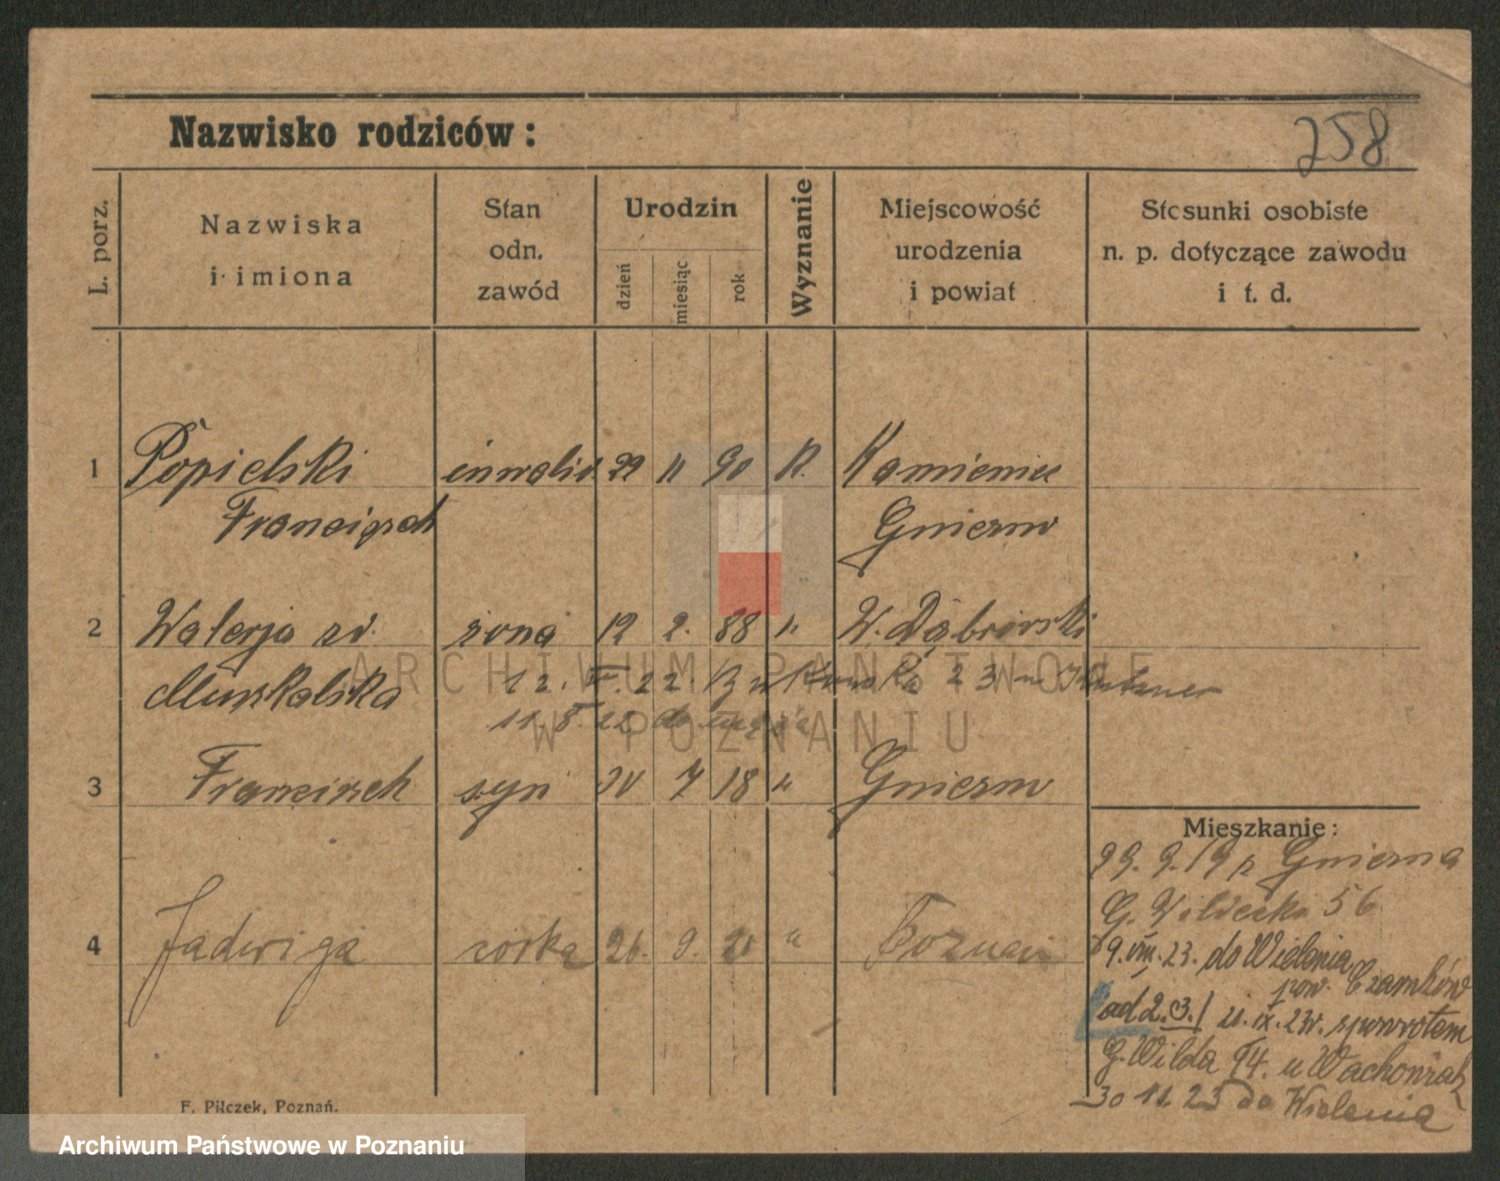 Nazwisko rodziców:
258
L. porz.
Nazwiska
i imiona
Stan
odn.
zawód
Urodzin
dzień
miesiąc
rok
Wyznanie
Miejscowość
urodzenia
i powiat
Stosunki osobiste
n. p. dotyczące zawodu
i t. d.
1 Popielski inwalid 22 11 90 K. Kamieniec
Franciszek Gniezno
2 Walerja zd. żona 12 2. 88 " W. Dąbrówski
Muszkalska 12. 22. 23
11. 8. 22 do męża
3 Franciszek syn 30 7 18 " Gniezno
4 Jadwiga córka 26. 9. 20 " Poznań
Mieszkanie:
29. 9. 19 z Gniezna
G. Wildecka 56
9. VIII. 23. do Wielenia
pow. Czarnków
ad 2. 3. / IX. 23r. spowrotem
G. Wilda 74. u Wachowiak
30 11. 23 do Wielenia
F. Pilczek, Poznań.
ARCHIWUM PAŃSTWOWE
W POZNANIU
Archiwum Państwowe w Poznaniu